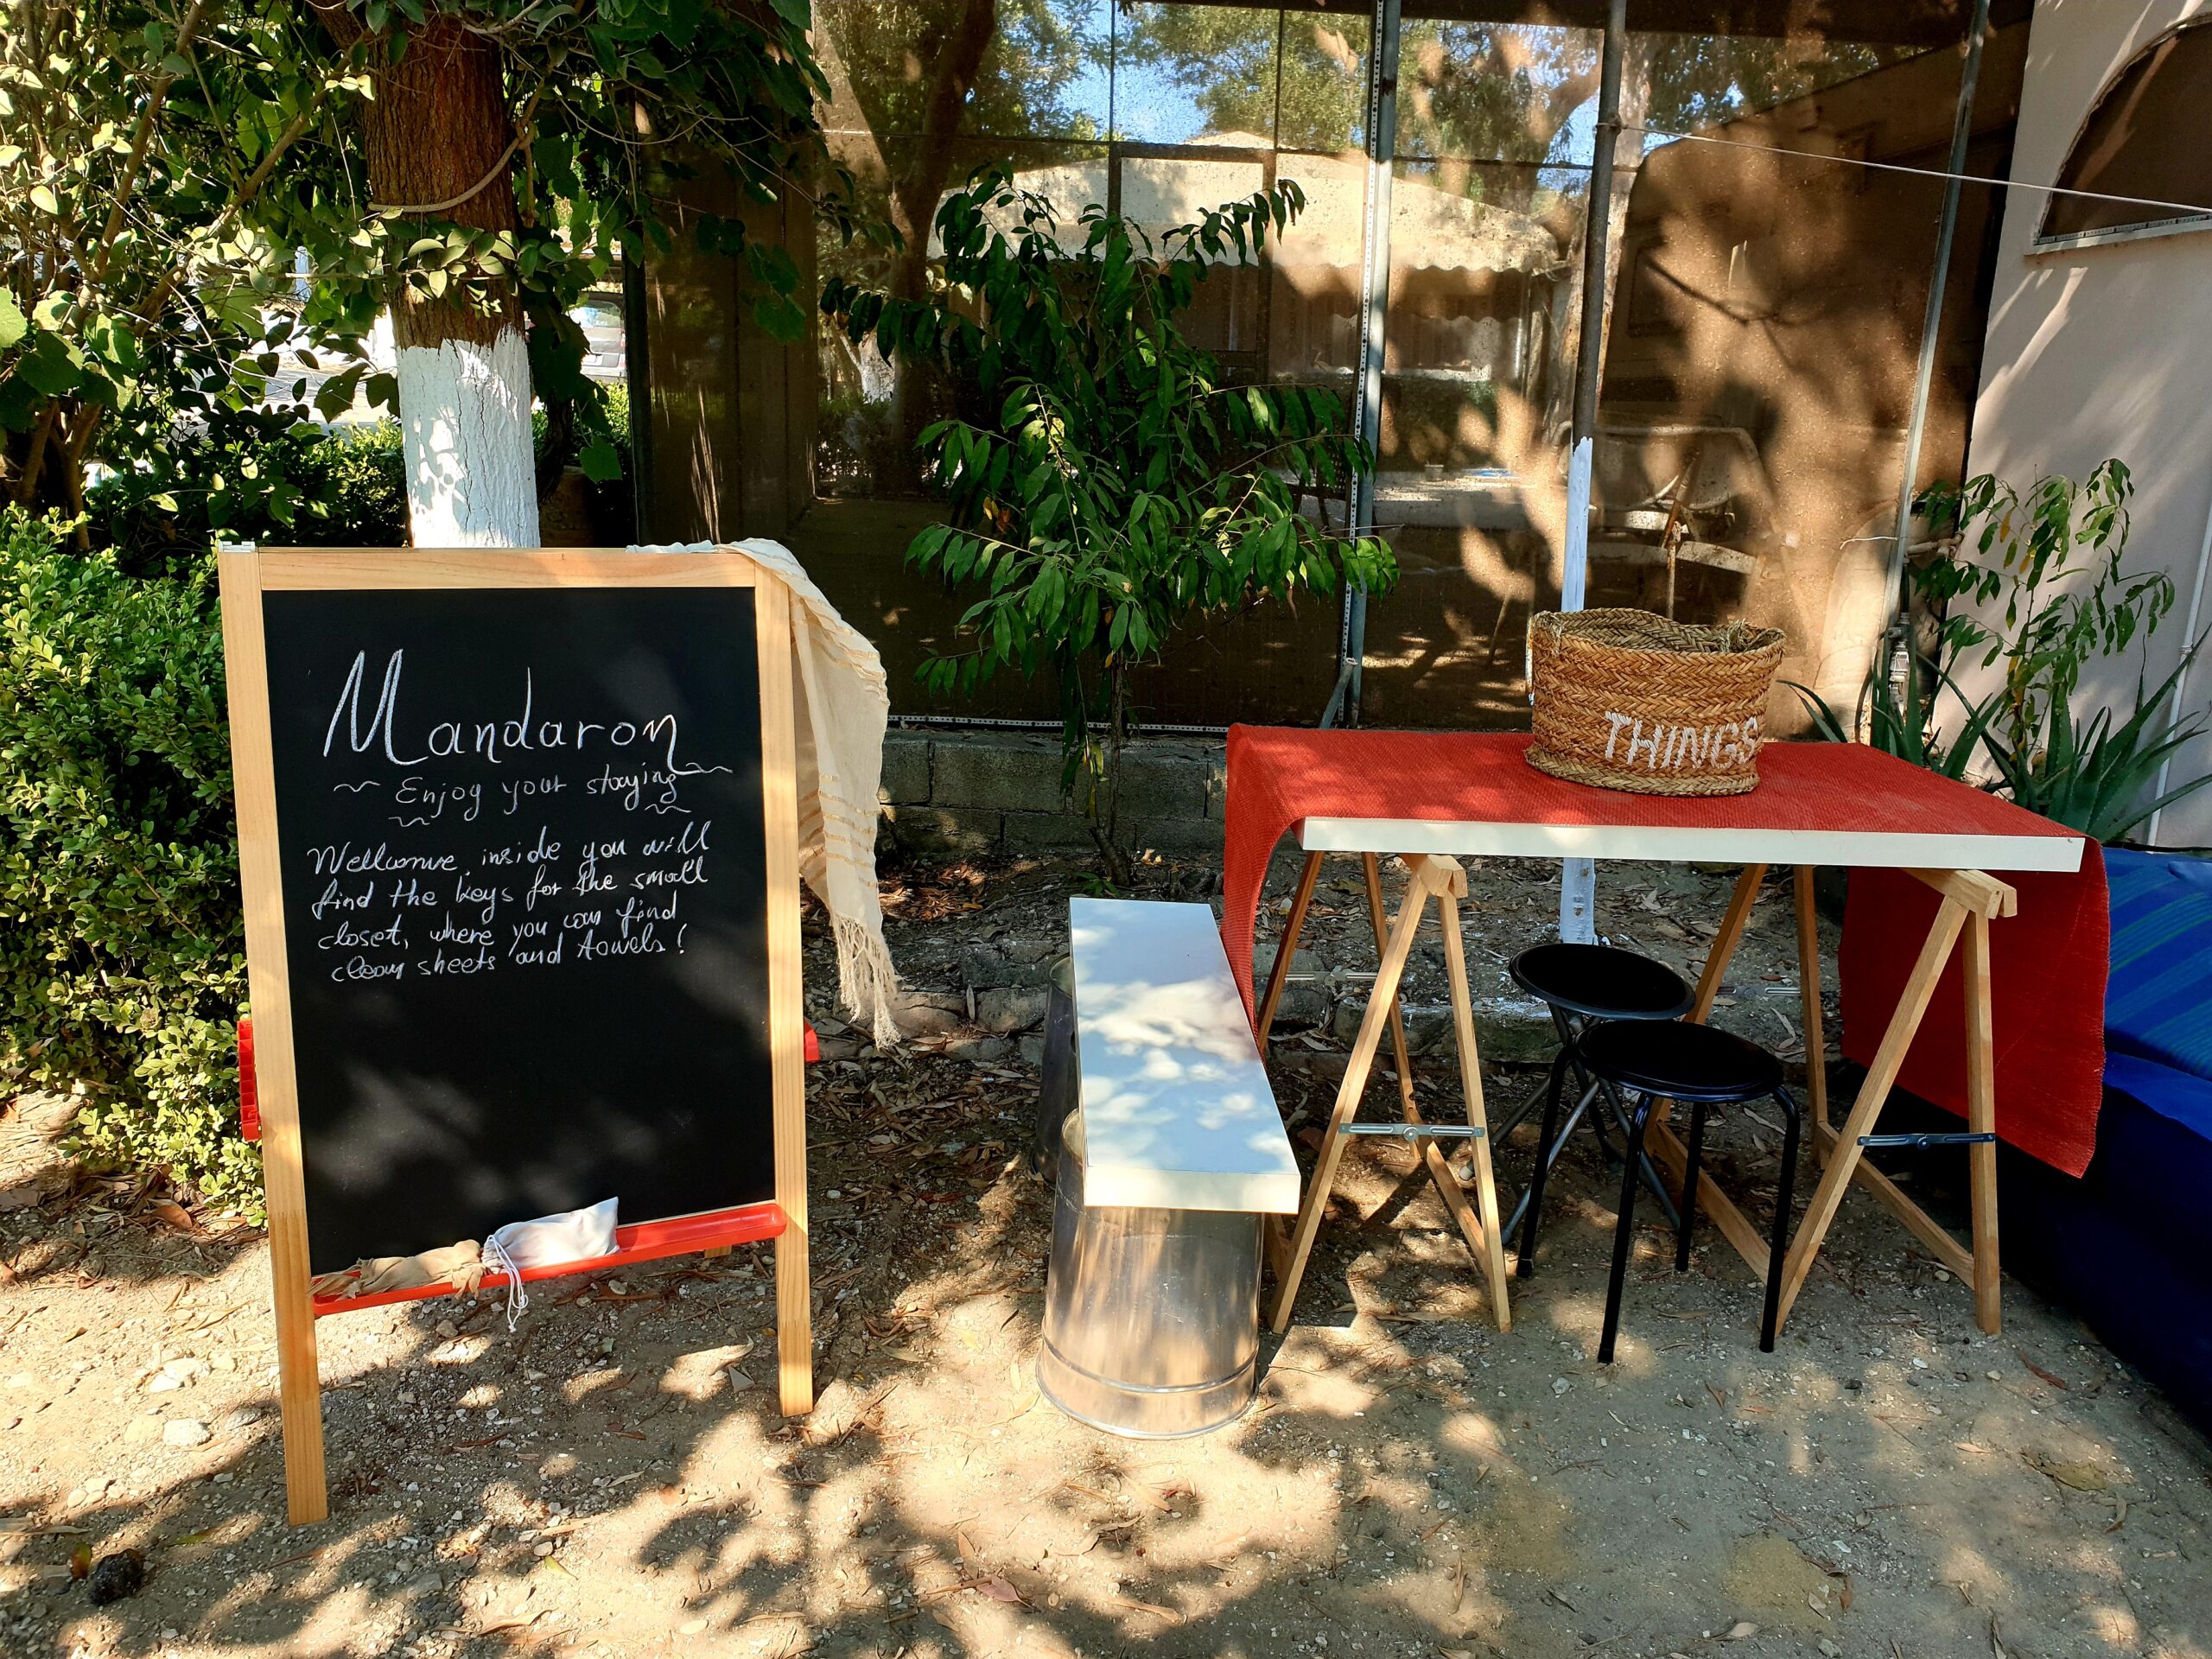 Mandaron
Enjoy your staying
Wellcome, inside you will
find the keys for the small
closet, where you can find
clean sheets and towels!
THINGS